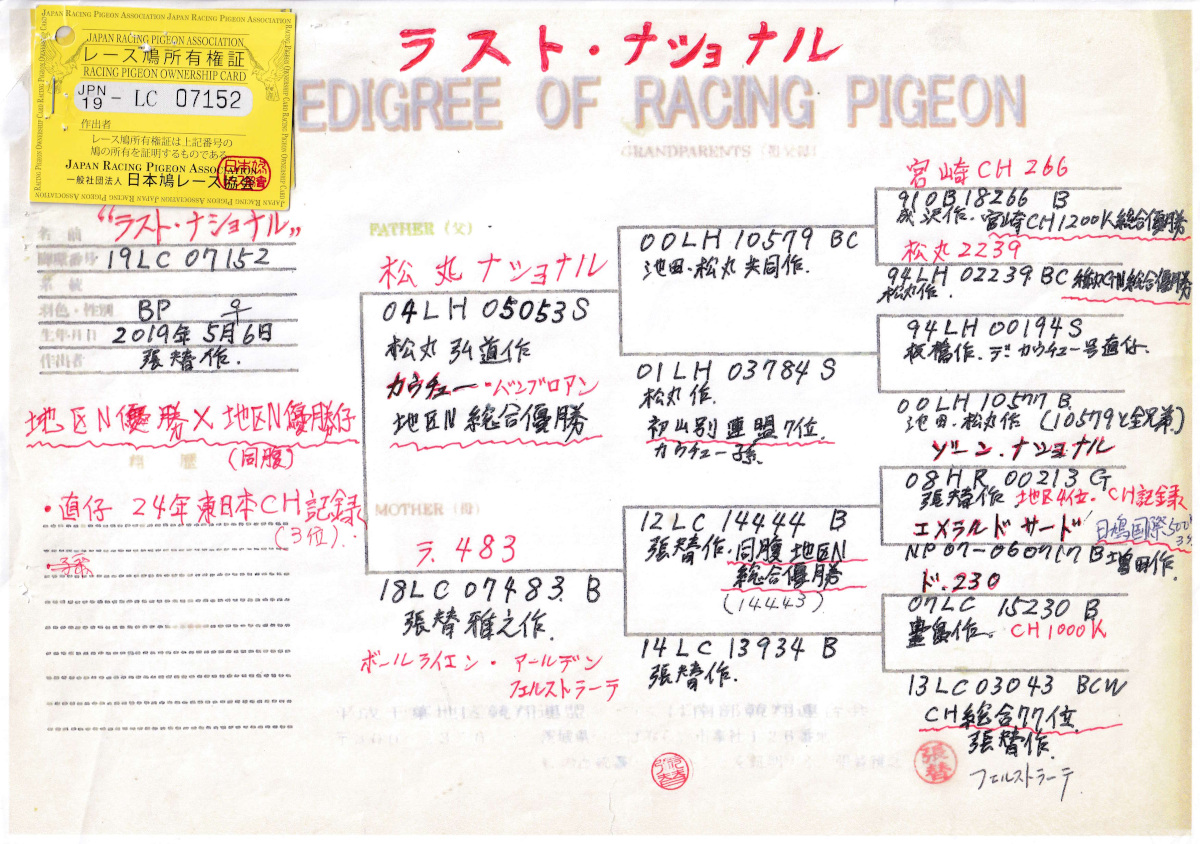 JAPAN RACING PIGEON ASSOCIATION JAPAN RACING PIGEON ASSOCIATION
JAPAN RACING PIGEON ASSOCIATION
レース鳩所有権証
RACING PIGEON OWNERSHIP CARD
JPN
19 - LC 07152
作出者
レース鳩所有権証は上記番号の
鳩の所有を証明するものである
JAPAN RACING PIGEON ASSOCIATION
一般社団法人 日本鳩レース協会
ラスト・ナショナル
EDIGREE OF RACING PIGEON
GRANDPARENTS (祖父母)
名前 "ラスト・ナショナル"
脚環番号 19LC 07152
系統
羽色・性別 BP ♀
生年月日 2019年5月6日
作出者 張替作.
地区N優勝×地区N優勝仔
(同腹)
・直仔 24年東日本CH記録
(3位)..
・孫
FATHER (父)
松丸ナショナル
04LH 05053 S
松丸弘道作
カウチュー・バンブロアン
地区N総合優勝
MOTHER (母)
ラ.483
18LC 07483 B
張替雅之作.
ボールライエン・アールデン
フェルストラーテ
00LH 10579 BC
池田、松丸共同作.
01LH 03784 S
松丸作.
初山別連盟7位.
カウチュー孫.
12LC 14444 B
張替作.同腹地区N
総合優勝
(14443)
14LC 13934 B
張替作.
宮崎CH266
910B18266 B
成沢作.宮崎CH1200K総合優勝
松丸2239
94LH 02239 BC
松丸作.
94LH 00194 S
板橋作.デカウチュー号直仔.
00LH 10577 B
池田、松丸作 (10579と全兄弟)
ゾーン.ナショナル
08HR 00213 G
張替作 地区4位.CH記録
エメラルドサード
NP07-060717 B 増田作.
ド.230
07LC 15230 B
豊島作. CH1000K
13LC03043 BCW
CH総合77位
張替作.
フェルストラーテ
張替